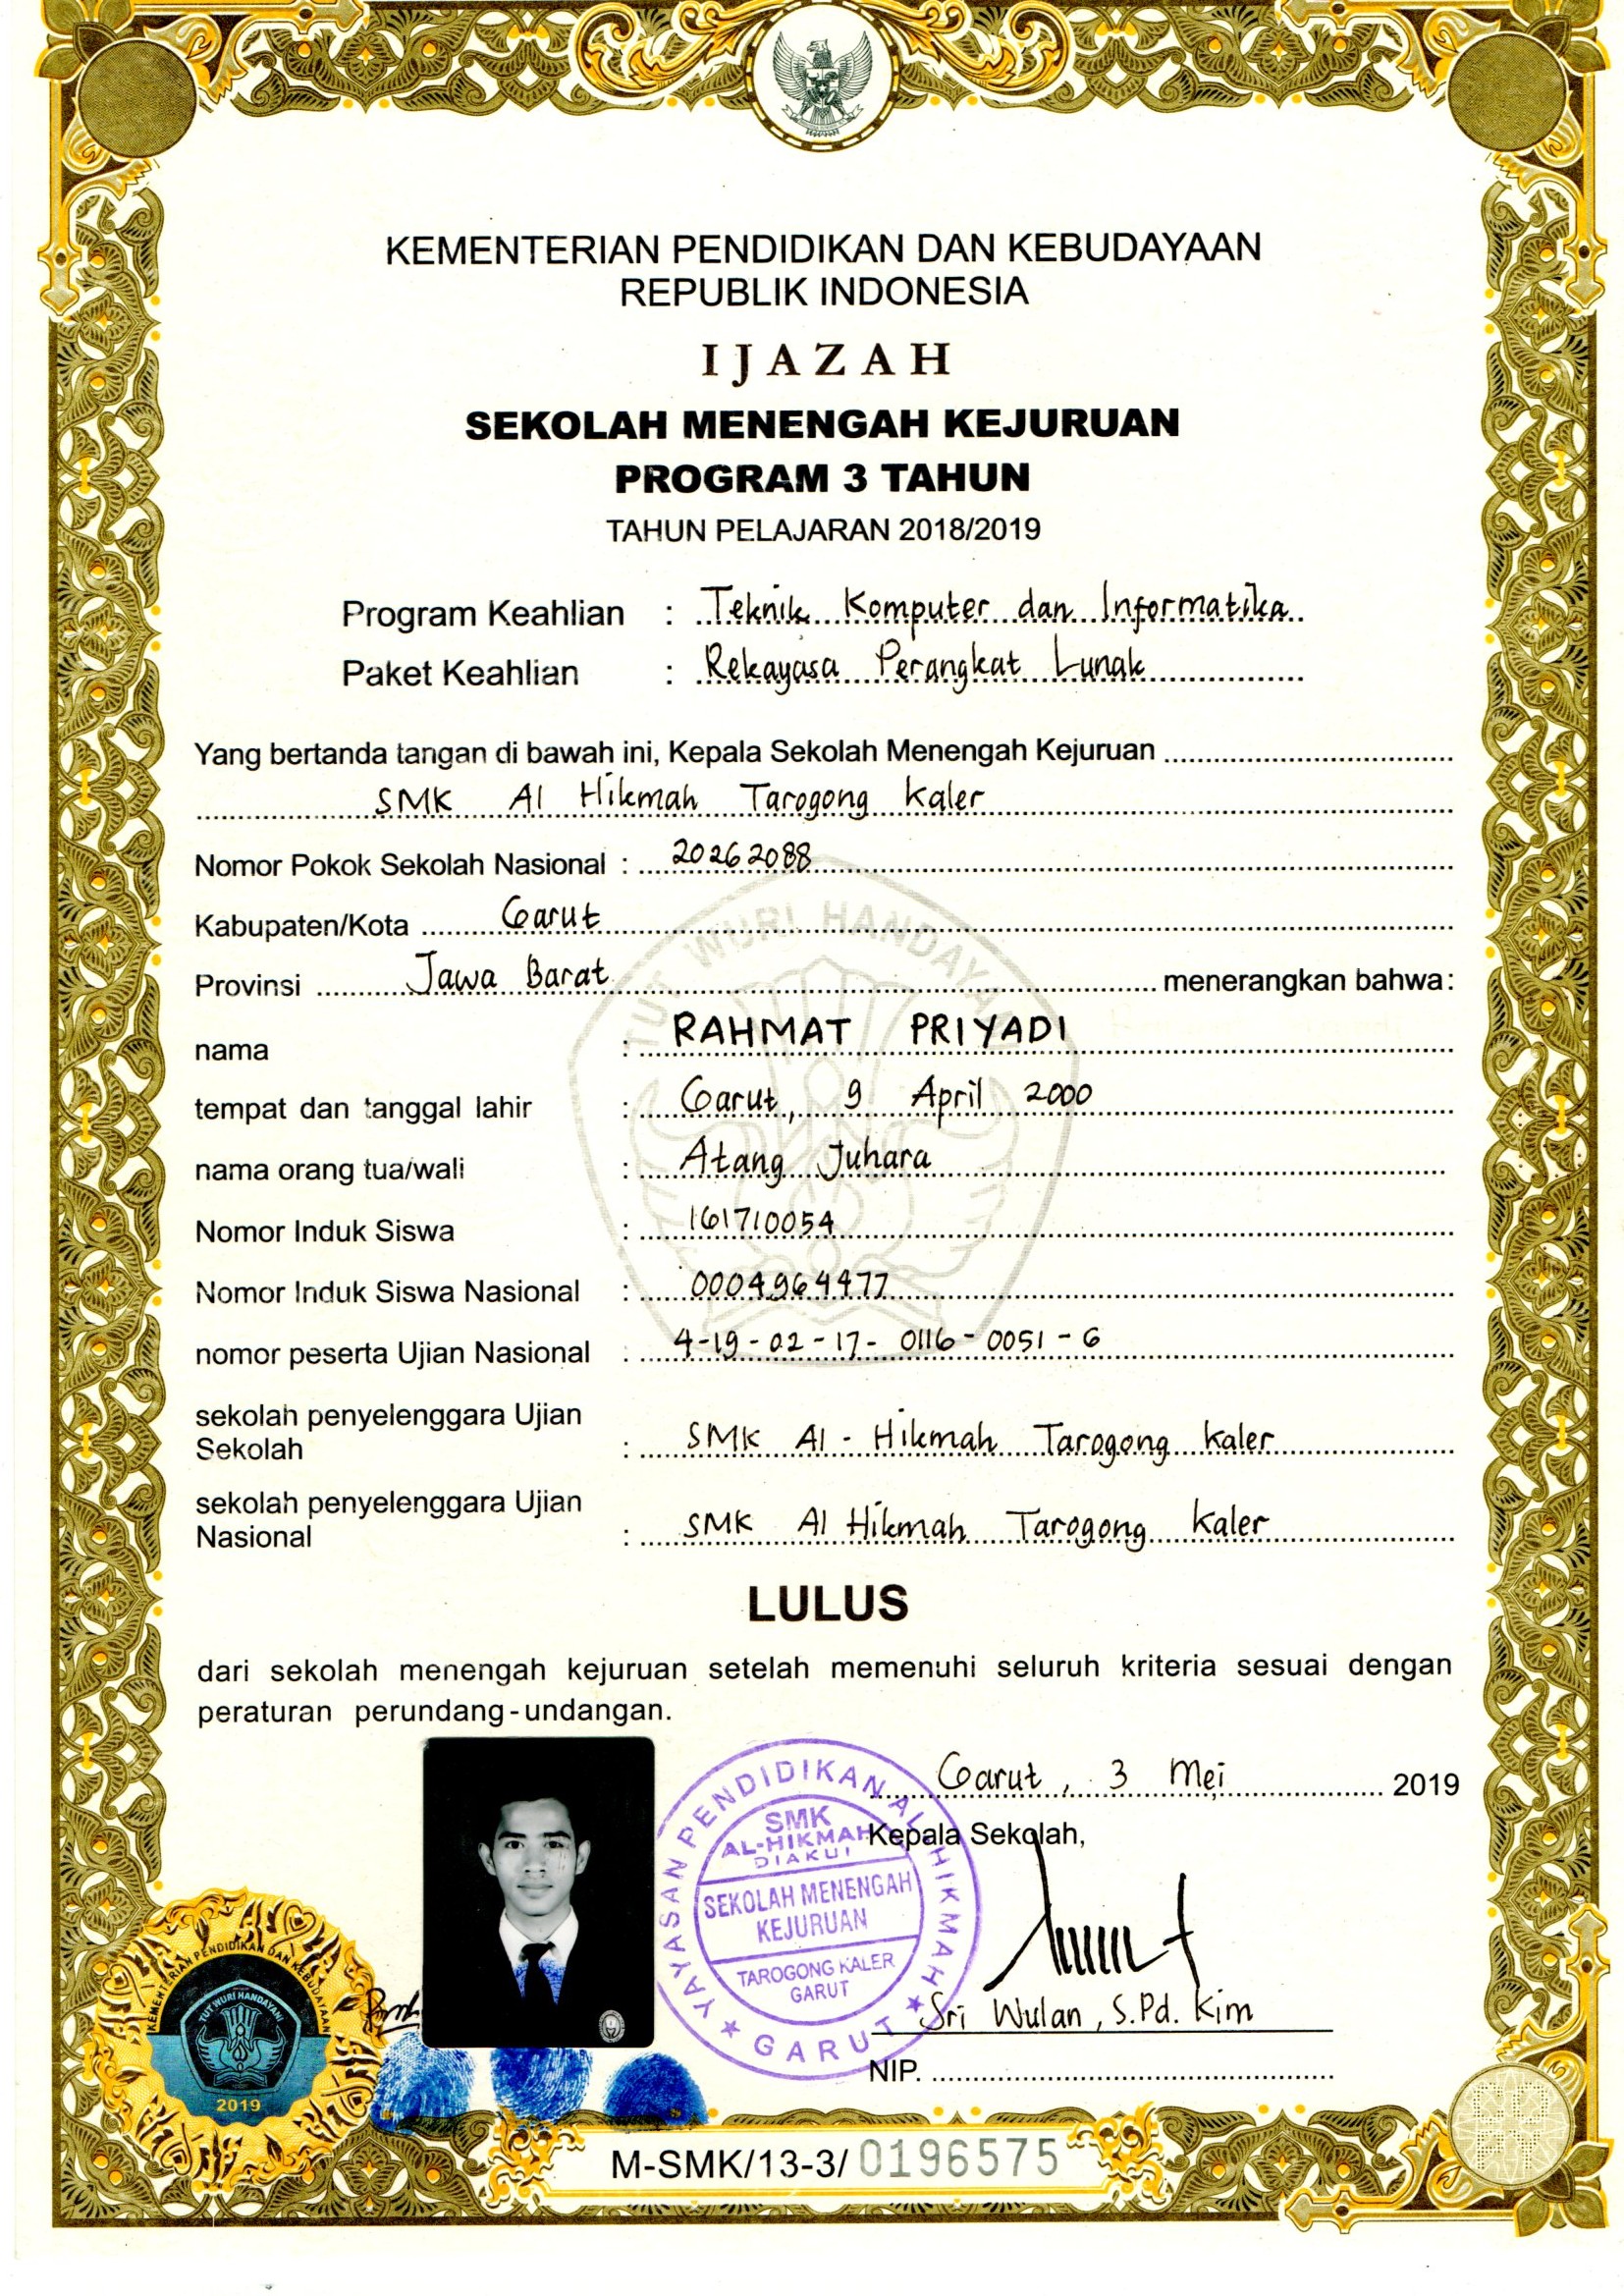 KEMENTERIAN PENDIDIKAN DAN KEBUDAYAAN
REPUBLIK INDONESIA
IJAZAH
SEKOLAH MENENGAH KEJURUAN
PROGRAM 3 TAHUN
TAHUN PELAJARAN 2018/2019
Program Keahlian : Teknik Komputer dan Informatika
Paket Keahlian : Rekayasa Perangkat Lunak
Yang bertanda tangan di bawah ini, Kepala Sekolah Menengah Kejuruan
SMK Al Hikmah Tarogong Kaler
Nomor Pokok Sekolah Nasional : 20262088
Kabupaten/Kota Garut
Provinsi Jawa Barat menerangkan bahwa:
TUT WURI HANDAYANI
nama : RAHMAT PRIYADI
tempat dan tanggal lahir : Garut, 9 April 2000
nama orang tua/wali : Atang Juhara
Nomor Induk Siswa : 161710054
Nomor Induk Siswa Nasional : 0004964477
nomor peserta Ujian Nasional : 4-19-02-17-0116-0051-6
sekolah penyelenggara Ujian
Sekolah : SMK Al-Hikmah Tarogong Kaler
sekolah penyelenggara Ujian
Nasional : SMK Al Hikmah Tarogong Kaler
LULUS
dari sekolah menengah kejuruan setelah memenuhi seluruh kriteria sesuai dengan
peraturan perundang-undangan.
Garut, 3 Mei 2019
Kepala Sekolah,
YAYASAN PENDIDIKAN AL-HIKMAH
SMK
AL-HIKMAH
DIAKUI
SEKOLAH MENENGAH
KEJURUAN
TAROGONG KALER
GARUT
★ GARUT ★
Sri Wulan, S.Pd. Kim
NIP.
KEMENTERIAN PENDIDIKAN DAN KEBUDAYAAN
TUT WURI HANDAYANI
2019
M-SMK/13-3/ 0196575